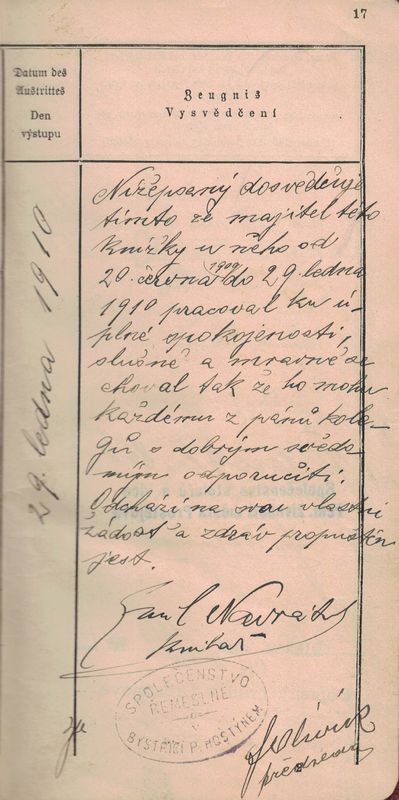 17
Datum des
Austrittes
Den
výstupu
Zeugnis
Vysvědčení
29. ledna 1910
Nížepsaný dosvědčuje
tímto že majitel této
knížky u něho od
20. června 1909 do 29. ledna
1910 pracoval ku ú-
plné spokojenosti,
slušně a mravně se
choval tak že ho mohu
každému z pánů kole-
gů s dobrým svědo-
mým odporučiti.
Odchází na svou vlastní
žádost a zdráv propuštěn
jest.
Emil Navrátil
knihař
SPOLEČENSTVO
ŘEMESLNÉ
v
BYSTŘICI P. HOSTÝNEM
předseda